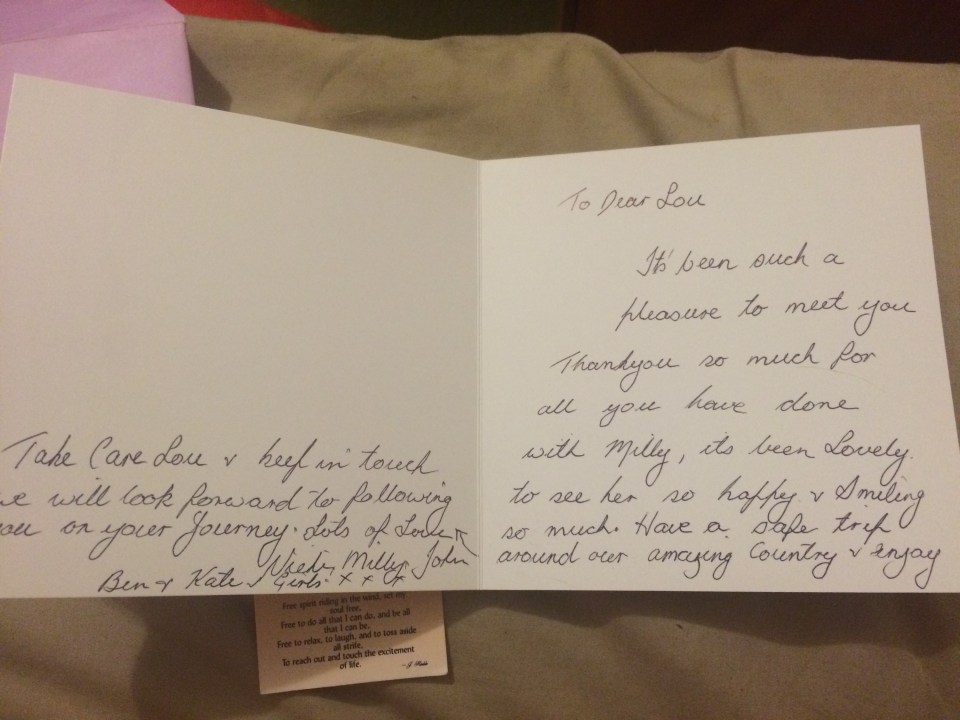 To Dear Lou
It's been such a
pleasure to meet you
Thankyou so much for
all you have done
with Milly, its been Lovely
to see her so happy & Smiling
so much. Have a safe trip
around our amazing Country & enjoy
Take Care Lou & keep in touch
we will look forward to following
you on your Journey. Lots of Love
Milly John
Ben & Kate & Girls x x x
Free spirit riding in the wind, set my
soul free,
Free to do all that I can do, and be all
that I can be.
Free to relax, to laugh, and to toss aside
all strife.
To reach out and touch the excitement
of life.